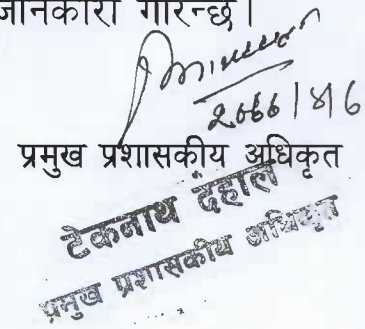 जानकारी गरिन्छ।
प्रमुख प्रशासकीय अधिकृत
टेकनाथ दहाल
प्रमुख प्रशासकीय अधिकृत